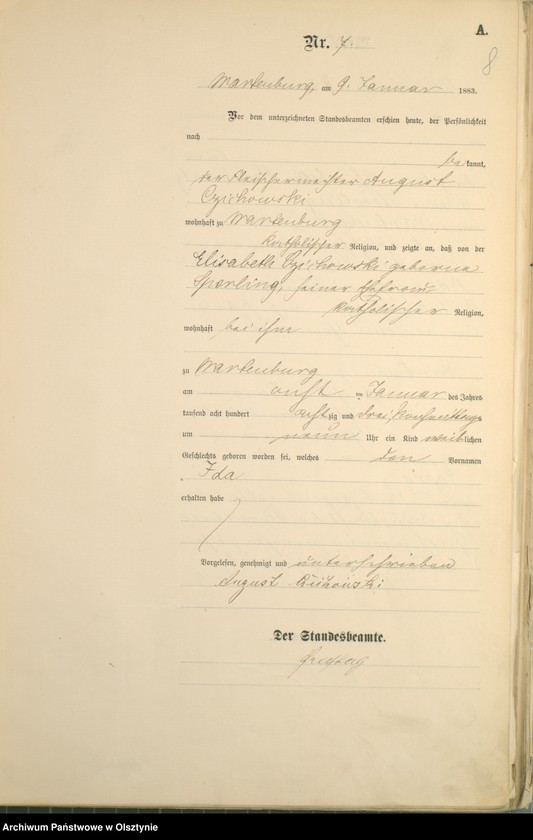 A.
8
Nr. 7.
Wartenburg, am 9. Januar 1883.
Vor dem unterzeichneten Standesbeamten erschien heute, der Persönlichkeit
nach
bekannt,
der Fleischermeister August
Czichowski
wohnhaft zu Wartenburg
katholischer Religion, und zeigte an, daß von der
Elisabeth Czichowski geborene
Sperling, seiner Ehefrau
katholischer Religion,
wohnhaft bei ihm
zu Wartenburg
am acht ten Januar des Jahres
tausend acht hundert achtzig und drei, Nachmittags
um neun Uhr ein Kind weiblichen
Geschlechts geboren worden sei, welches den Vornamen
Ida
erhalten habe
Vorgelesen, genehmigt und unterschrieben
August
Der Standesbeamte.
Archiwum Państwowe w Olsztynie